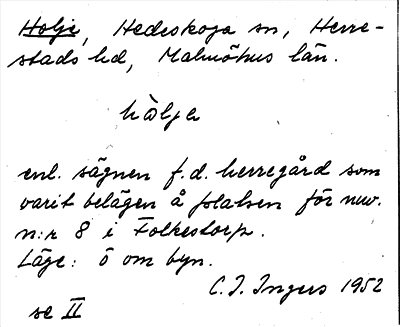 Holje, Hedeskoga sn, Herre-
stads hd, Malmöhus län.
hòlja
enl. sägnen f.d. herregård som
varit belägen å platsen för nuv.
n:r 8 i Folkestorp.
Läge: ö om byn.
C.I. Ingers 1952
se II